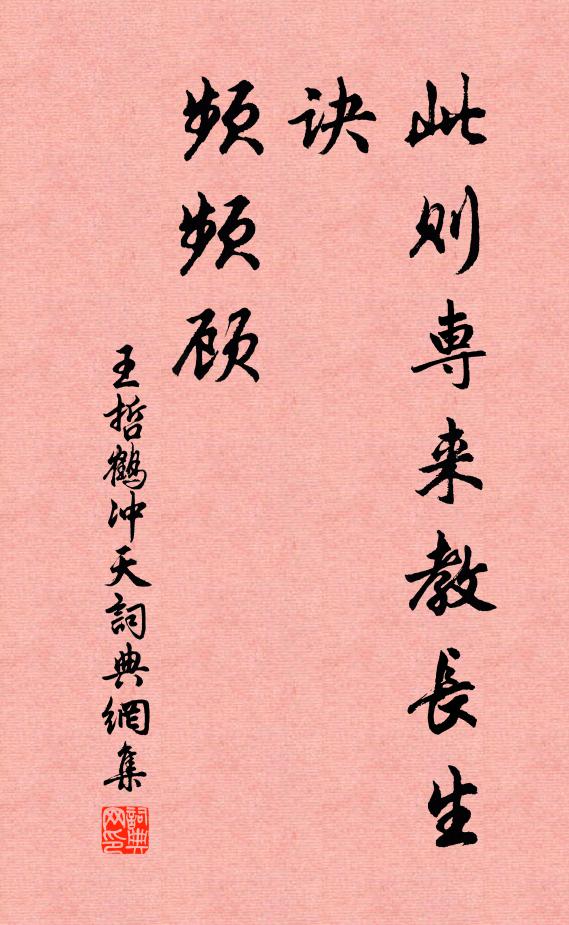 此则専来教長生
訣
频频顾
王哲鹤冲天詞典網集
詞典
网印